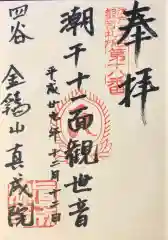 奉拝
第十八番
潮干十面観世音
平成廿九年十二月十三日
四谷
金鶏山真成院